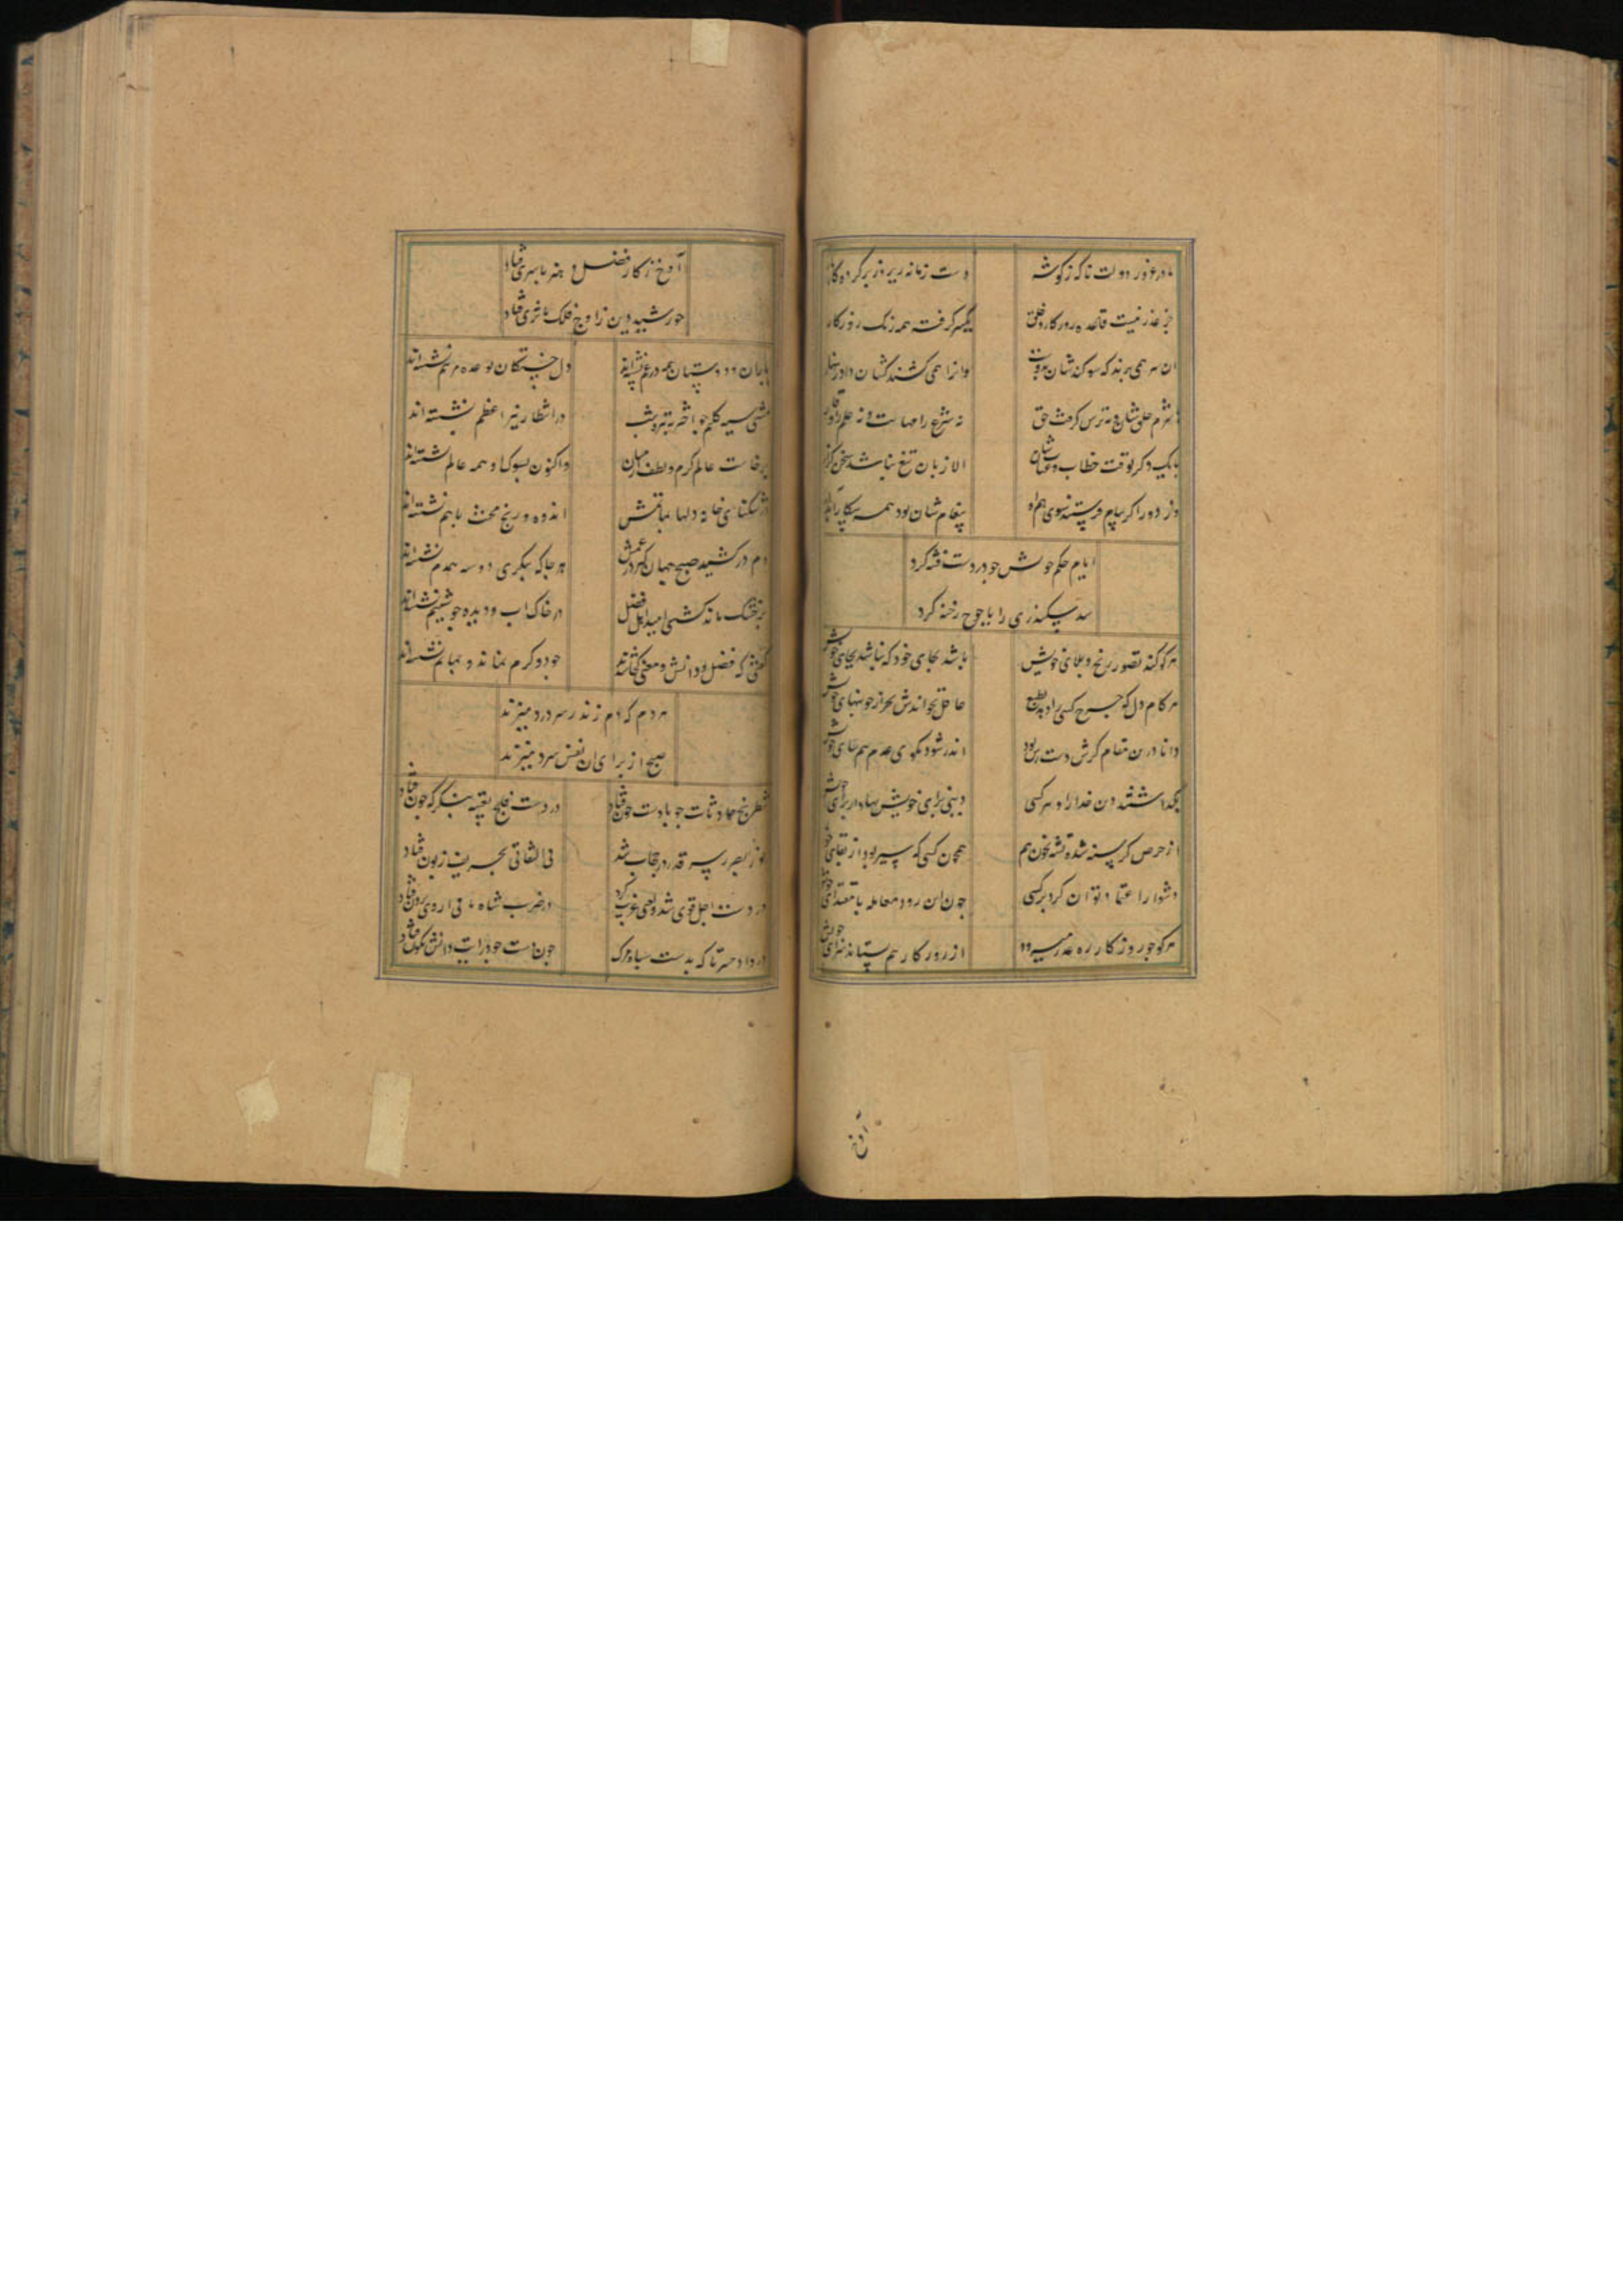 ما در غرور دولت ناگه ز گوشه دست زمانه
جز عذر نیست قاعده روزگار و خلق یکسر گرفت همه رنگ روزگار
ان سر همی برند که سوکندشان بدوست وانرا همی کشند کشان داد
نه شرع را مهابت و نه علم را وقار
بانک دکر بوقت خطاب و الا زبان تیغ نباشد سخن گزار
از دور اکر پیام فرستند سوی هم پیغامشان بود همه
ایام حکم خویش چو در دست فتنه کرد
سد سکندری را یاجوج رخنه کرد
هر کو کند تصور رنج و بلای خویش باشد بجای خود که نباشد بجای خویش
هر کام دل که چرخ کسی را دهد بطبع عاقل نخواندش بجز از خونبهای خویش
دانا درین مقام کرش دست رس بود اندر شود بکوی عدم هم بپای خویش
بگذاشتند دین خدا را و هر کسی دینی برای خویش نهاد از برای خویش
از حرص کرسنه شده تشنه بخون هم همچون کسی که سیر بود از بقای خویش
دشوار اعتماد توان کرد بر کسی چون این رود معامله با مقتدای خویش
هر کو چو روزکار ره غدر میرود از روزکار هم ستاند سزای خویش
آوخ
آوخ ز کار فضل و هنر با سری فتاد
خورشید دین ز اوج فلک با ثری فتاد
یاران و دوستان همه در غم نشسته‌اند دل خستکان بوعده مرهم نشسته‌اند
مشتی سیه کلیم چو اختر به تیره شب در انتظار نیر اعظم نشسته اند
برخاست عالم کرم و لطف از میان واکنون بسوک او همه عالم نشسته‌اند
در تنکنای خانه دلها بماتمش اندوه و رنج و محنت باهم نشسته‌اند
دم در کشید صبح جهان کهر درغمش هر جا که بنکری دو سه همدم نشسته‌اند
بر خشک ماند کشتی امید اهل فضل در خاک و اب دیده چو شبنم نشسته‌اند
کفتی که فضل و دانش و معنی کجا شدند جود و کرم نماند و بماتم نشسته‌اند
هر دم که دم زند ز سر درد میزند
صبح از برای ان نفس سرد میزند
شطرنج حادثات چو با دست خون فتاد در دست فلج بقیه بنگر که چون فتاد
نور بصر ز پرده قدر در حجاب شد فی الثقاتی بحریف زبون فتاد
در دست اجل قوی شد و بغی غریب کرد در ضرب شاه ما
دردا و حسرتا که بدست سپاه مرک چون دست جود رایت دانش نکون فتاد